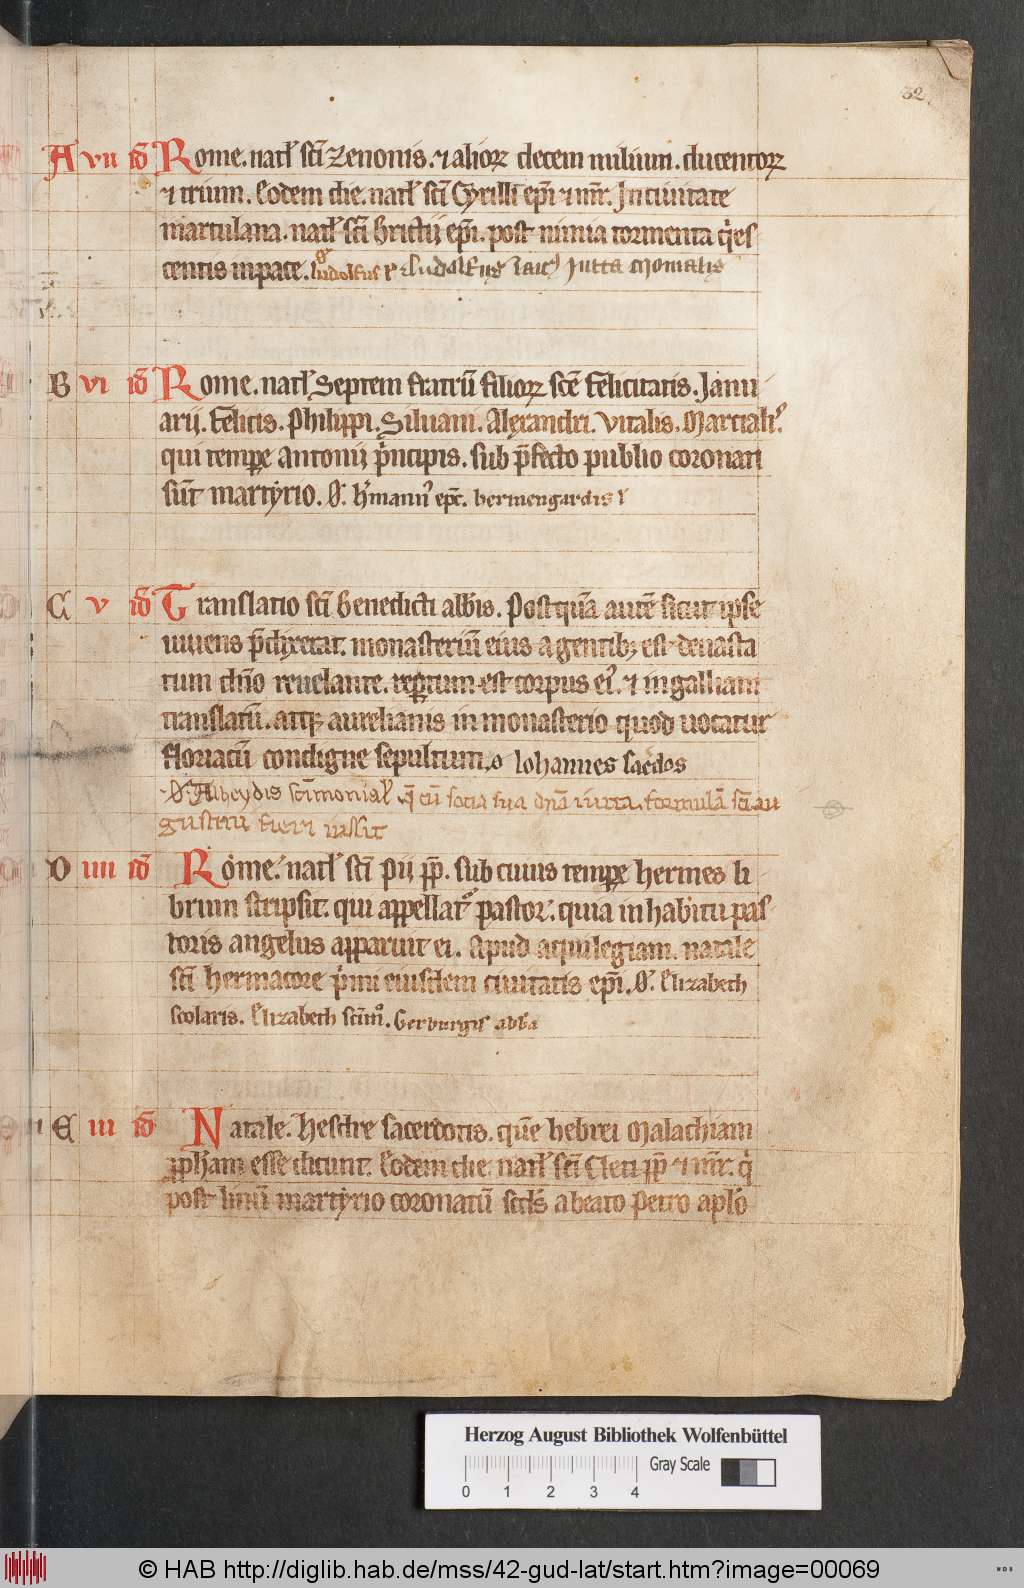 32
A vii id Rome. natł sci Zenonis. ⁊ alioꝝ decem milium. ducentoꝝ
⁊ trium. Eodem die. natł sci Cyrilli ep̄i ⁊ mr̄. In ciuitate
martulana. natł sci Brictij ep̄i. post nimia tormenta qͥes
centis in pace. Ludolfus Ludolfus laic Jutta monialis
B vi id Rome. natł Septem fratrū filioꝝ sc̄e Felicitatis. Janu
arij. Felicis. Philippi. Siluani. Alexandri. Vitalis. Martialis.
qui tempꝛe Antonii pͥncipis. sub p̄fecto publio coronati
sūt martyrio. O. h'mann' ep̄c. hermengardis
C v id Translatio sci Benedicti abbīs. Postquā autē sicut ipse
uiuens p̄dixerat. monasteriū eius a gentibꝫ est deuasta
tum dn̄o reuelante. reꝑtum est corpus ei'. ⁊ in galliam
translatū. atqꝫ aurelianis in monasterio quod uocatur
floriacū condigne sepultum. o Iohannes sac̄dos
O. Alheydis sc̄imonial' q̄ cū socia sua dn̄a iutta. formulā sci au
gustini fieri iussit
D iiii id Rome. natł sci Pii pp̄. sub cuius tempꝛe hermes li
brum scripsit. qui appellatͬ pastor. quia in habitu pas
toris angelus apparuit ei. Apud aquilegiam. natale
sci hermacore pͥmi eiusdem ciuitatis ep̄i. O. Elizabeth
scolaris. Elizabeth sc̄im̊. Gerburgis abb̄a
E iii id Natale. hesdre sacerdotis. quē hebrei Malachiam
ꝓph̄am esse dicunt. Eodem die natł sci Cleti pp̄ ⁊ mr̄. qͥ
post linū martyrio coronatū scdꝰ a beato Petro apl̄o
Herzog August Bibliothek Wolfenbüttel
Gray Scale
0 1 2 3 4
© HAB http://diglib.hab.de/mss/42-gud-lat/start.htm?image=00069